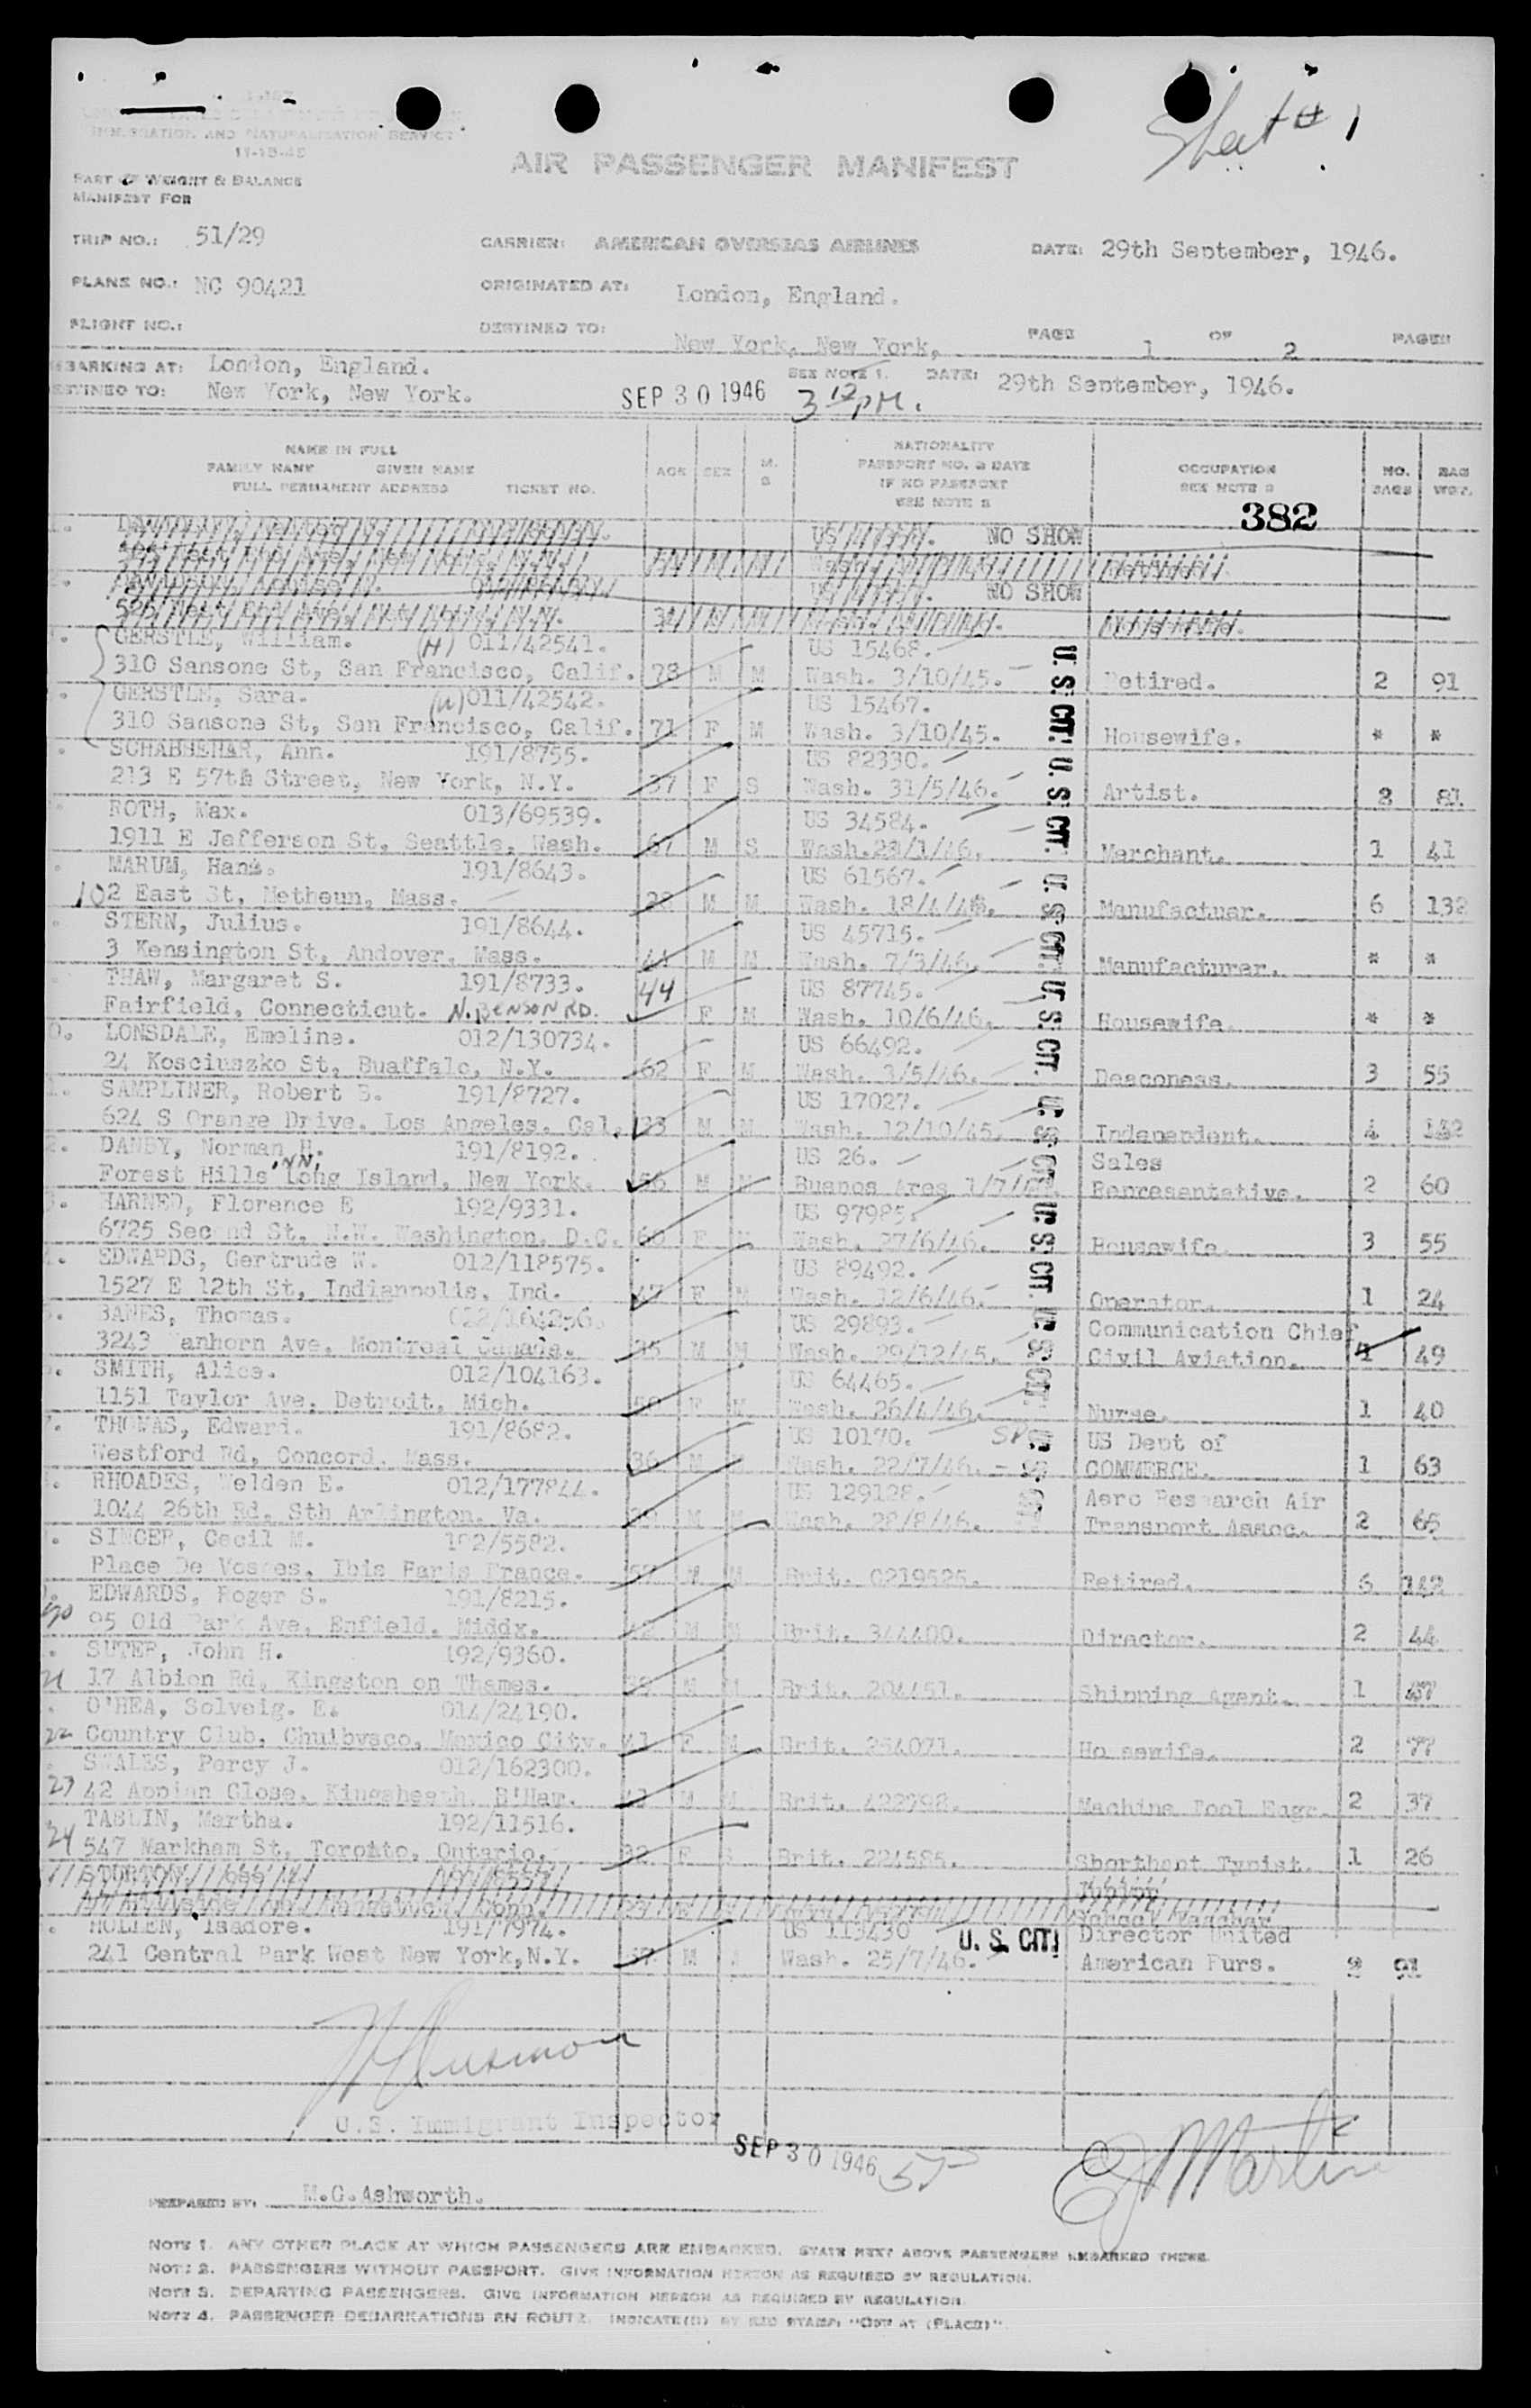 Sheet # 1
IMMIGRATION AND NATURALIZATION SERVICE
11-15-45
AIR PASSENGER MANIFEST
PART OF WEIGHT & BALANCE
MANIFEST FOR
TRIP NO.: 51/29
CARRIER: AMERICAN OVERSEAS AIRLINES
DATE: 29th September, 1946.
PLANE NO.: NC 90421
ORIGINATED AT: London, England.
FLIGHT NO.:
DESTINED TO: New York, New York,
PAGE 1 OF 2 PAGES
EMBARKING AT: London, England.
SEE NOTE 1. DATE: 29th September, 1946.
DESTINED TO: New York, New York.
SEP 30 1946 3 12 PM.
NAME IN FULL
FAMILY NAME GIVEN NAME
FULL PERMANENT ADDRESS TICKET NO.
AGE SEX M. S
NATIONALITY
PASSPORT NO. & DATE
IF NO PASSPORT
SEE NOTE 2
OCCUPATION
SEE NOTE 3
NO. BAGS
BAG WGT.
382
NO SHOW
NO SHOW
GERSTLE, William. (H) 011/42541. US 15468.
310 Sansone St, San Francisco, Calif. 78 M M Wash. 3/10/45. Retired. 2 91
GERSTLE, Sara. (W) 011/42542. US 15467.
310 Sansone St, San Francisco, Calif. 71 F M Wash. 3/10/45. Housewife. * *
Ann. 191/8755. US 82330.
213 E 57th Street, New York, N.Y. 37 F S Wash. 31/5/46. Artist. 81
ROTH, Max. 013/69539. US 34584.
1911 E Jefferson St, Seattle, Wash. M S Merchant. 1 41
MARUM, Hans. 191/8643. US 61567.
102 East St, Metheun, Mass. M M Wash. 18/4/46. Manufactuar. 6 132
STERN, Julius. 191/8644. US 45715.
3 Kensington St, Andover, Mass. M M Wash. 7/3/46. Manufacturer. * *
THAW, Margaret S. 191/8733. 44 US 87745.
Fairfield, Connecticut. N. BENSON RD. F M Wash. 10/6/46. Housewife. * *
10. LONSDALE, Emeline. 012/130734. US 66492.
24 Kosciuszko St, Buaffalo, N.Y. 62 F M Wash. 3/5/46. Deaconess. 3 55
SAMPLINER, Robert B. 191/8727. US 17027.
624 S Orange Drive, Los Angeles, Cal. 33 M M Wash. 12/10/45. Independent. 4
DANBY, Norman H. 191/8192. US 26. Sales
Forest Hills, NY, Long Island, New York. 56 M M Representative. 2 60
HARNED, Florence E 192/9331. US 97985.
6725 Second St, N.W. Washington, D.C. 60 F M Wash. 27/6/46. Housewife. 3 55
EDWARDS, Gertrude W. 012/118575. US 89492.
1527 E 12th St, Indianpolis, Ind. 47 F M Wash. 12/6/46. Operator. 1 24
Thomas. US 29893. Communication Chief
3243 Vanhorn Ave, Montreal Canada. M M Wash. 29/12/45. Civil Aviation. 49
SMITH, Alice. 012/104163. US 64465.
1151 Taylor Ave, Detroit, Mich. F M Wash. 26/4/46. Nurse. 1 40
THOMAS, Edward. 191/8682. US 10170. US Dept of
Westford Rd, Concord, Mass. 36 M M Wash. 22/7/46. COMMERCE. 1 63
RHOADES, Welden E. 012/177844. US 129128. Aero Research Air
1044 26th Rd, Sth Arlington, Va. M M Wash. 28/8/46. Transport Assoc. 2 65
SINGER, Cecil M. 192/5582.
Place De Vosges, Ibis Paris France. M M Brit. C219525. Retired. 6 142
EDWARDS, Roger S. 191/8215.
20 95 Old Park Ave, Enfield, Middx. M M Brit. 344400. Director. 2 44
SUTER, John H. 192/9360.
21 17 Albion Rd, Kingston on Thames. M M Brit. 204451. Shipping Agent. 1 37
O'HEA, Solveig. E. 014/24190.
22 Country Club, Chuibvsco, Mexico City. 41 F M Brit. 254071. Housewife. 2 77
SWALES, Percy J. 012/162300.
23 42 Appian Close, Kingsheath, B'Ham. 43 M M Brit. 422998. Machine Tool Engr. 2 37
TABLIN, Martha. 192/11516.
24 547 Markham St, Toronto, Ontario. 32 F S Brit. 224585. Shorthant Typist. 1 26
School Teacher
Isadore. 191/7974. US 113430 Director United
241 Central Park West New York, N.Y. M Wash. 25/7/46. American Furs.
U. S. CIT.
U. S. CIT.
U. S. CIT.
U. S. CIT.
U. S. CIT.
U. S. CIT.
U. S. CIT.
U. S. CIT.
U. S. Immigrant Inspector
SEP 30 1946
E J Martin
PREPARED BY: M.C.Ashworth.
NOTE 1. ANY OTHER PLACE AT WHICH PASSENGERS ARE EMBARKED. STATE NEXT ABOVE PASSENGERS EMBARKED THERE.
NOTE 2. PASSENGERS WITHOUT PASSPORT. GIVE INFORMATION HEREON AS REQUIRED BY REGULATION.
NOTE 3. DEPARTING PASSENGERS. GIVE INFORMATION HEREON AS REQUIRED BY REGULATION.
NOTE 4. PASSENGER DEBARKATIONS EN ROUTE. INDICATE(D) BY RED STAMP: "OFF AT (PLACE)".